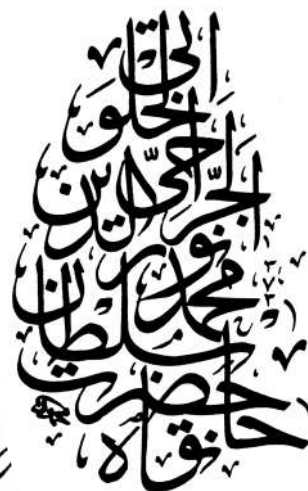 خانقاه
حضرت
سلطان
محمد
نور الدين
الجراحى
الخلوتى